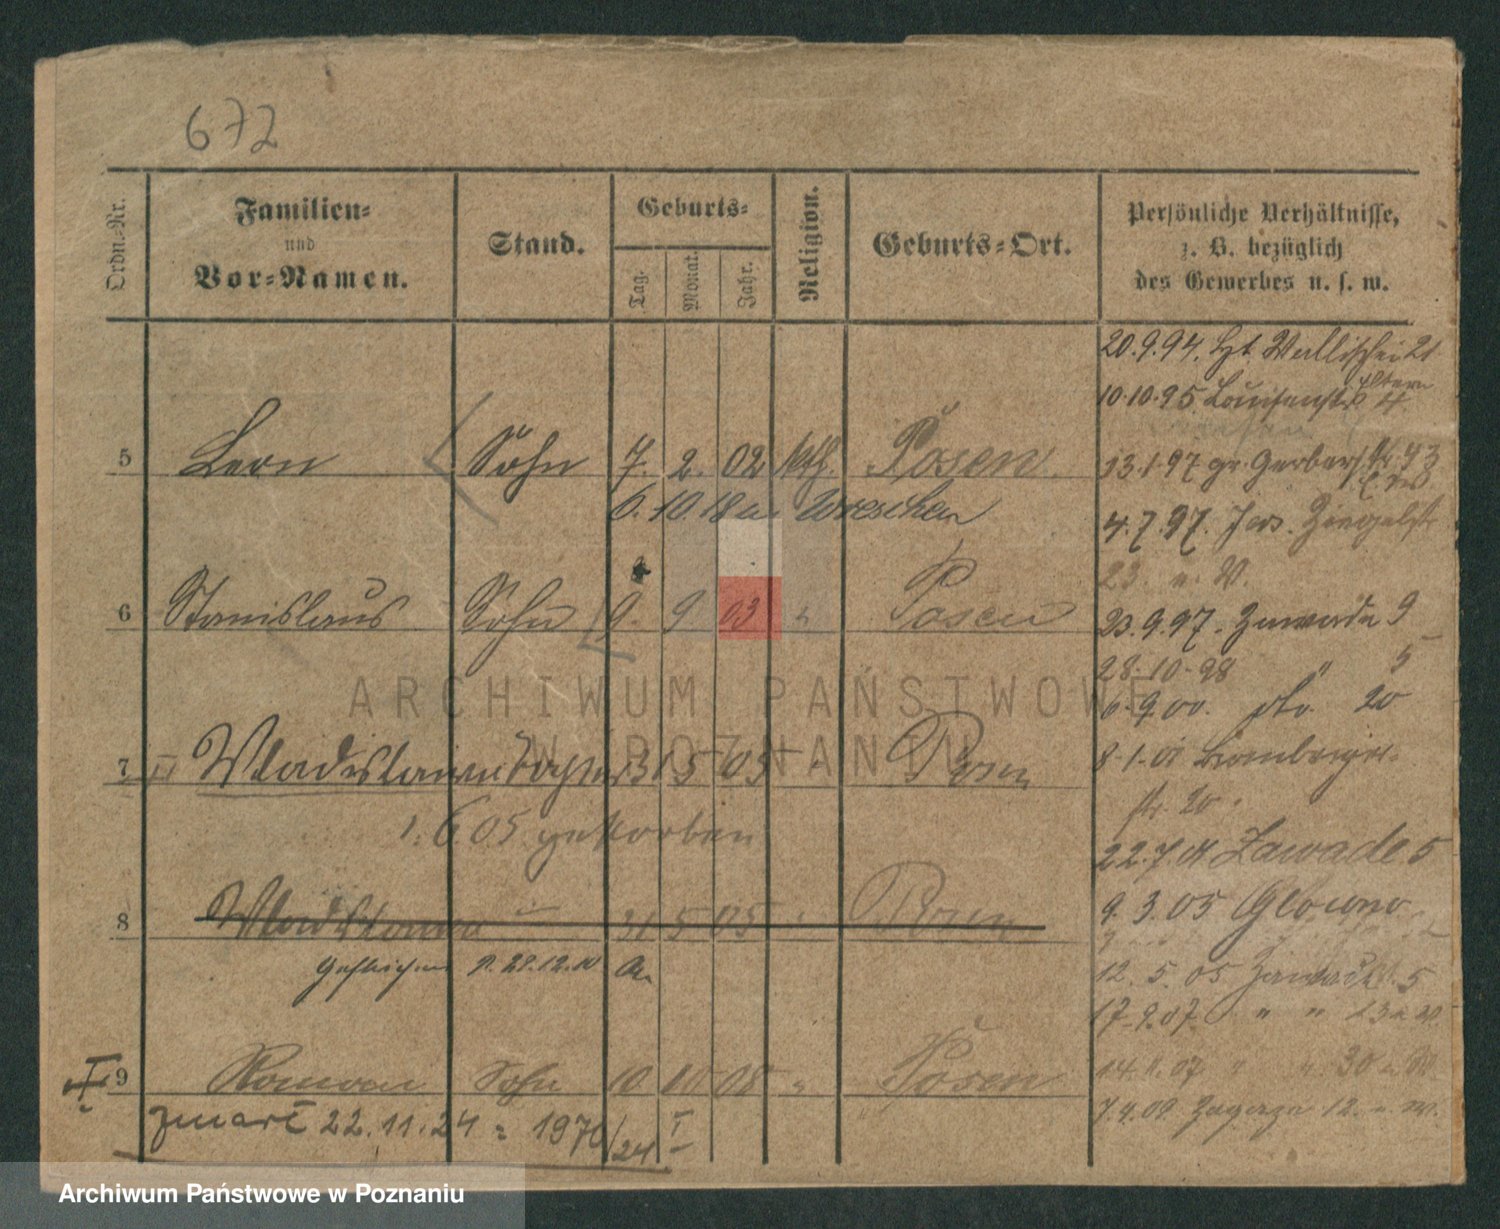 672
Ordn.-Nr.
Familien-
und
Vor-Namen.
Stand.
Geburts-
Tag.
Monat.
Jahr.
Religion.
Geburts-Ort.
Persönliche Verhältnisse,
z. B. bezüglich
des Gewerbes u. s. w.
5 Leon Sohn 7. 2. 02 kth. Posen
6. 10. 18 Wreschen
6 Stanislaus Sohn 9. 9 03 " Posen
7 II Wladislawa Tochter 31 5 05 " Posen
1. 6 05 gestorben
8 Wladislawa 31 5 05 " Posen
Gestrichen 28.12.10
I 9 Roman Sohn 10 08 " Posen
zmarł 22.11.24 = 1970/24 I
20.9.94. Wallischei 21
10.10.95 Louisenstr. 4
Eltern
13.1.97 gr. Gerberstr. 43
4.7.97. Ziegelstr
23. u. W.
23.9.97. Zawade 9
28.10.98 " 5
6.9.00. dto. 20
8.1.01 Bromberger-
str. 20.
22.7.01 Zawade 5
9.3.05 Glowno
12.5.05 Zawade 5
17.9.07 " " 13 u W
14.11.07 " " 30 u. W.
7.4.09 Zagorze 12. u. W.
ARCHIWUM PAŃSTWOWE
W POZNANIU
Archiwum Państwowe w Poznaniu